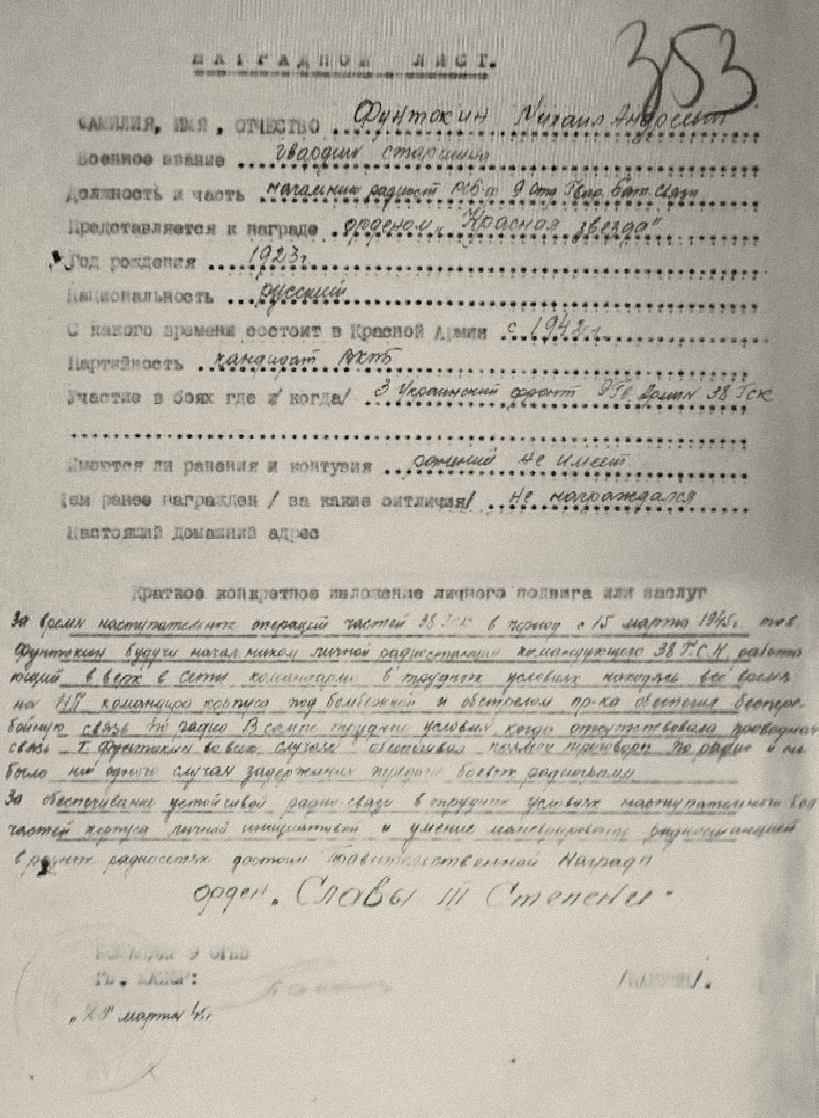 353
НАГРАДНОЙ ЛИСТ.
ФАМИЛИЯ, ИМЯ, ОТЧЕСТВО Фунтокин Михаил
Военное звание гвардии старшина
Должность и часть начальник радиост 9 Гвар. Бат. связи
Представляется к награде орденом „Красная звезда"
Год рождения 1923г.
Национальность русский
С какого времени состоит в Красной Армии с
Партийность кандидат
Участие в боях где и/ когда/ 3 Украинский фронт 38 Гск
Имеются ли ранения и контузия ранений не имеет
Чем ранее награжден / за какие онтличия/ не награждался
Настоящий домашний адрес
Краткое конкретное изложение личного подвига или заслуг
За время наступательных операций частей 38 Гск в период с 15 марта 1945г. тов.
Фунтокин будучи начальником личной радиостанции командующего 38 Г.С.К. работа
ющий в верх в сети командарма в трудных условиях находясь всё время
на НП командира корпуса под бомбежкой и обстрелом пр-ка обеспечил беспере-
бойную связь по радио В самые трудные условия когда отсутствовала проводная
связь т. Фунтокин во всех случаях обеспечивал прямые переговоры по радио и не
было ни одного случая задержания передачи боевых радиограмм
За обеспечивание устойчивой радио-связи в трудных условиях наступательного боя
частей корпуса личной инициативой и умение маневрирование радиостанцией
в радиосетях достоин Правительственной Награды
орден „Славы III Степени"
ГВ. МАЙОР:
марта 45г